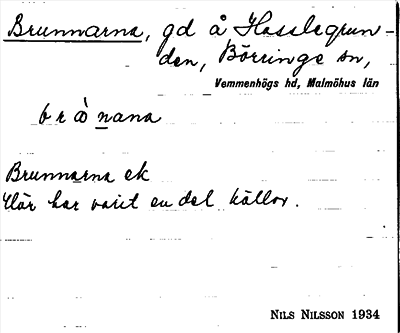 Brunnarna, gd å Hasslegrun-
den, Börringe sn,
Vemmenhögs hd, Malmöhus län
brånana
Brunnarna ek
Här har varit en del källor.
NILS NILSSON 1934